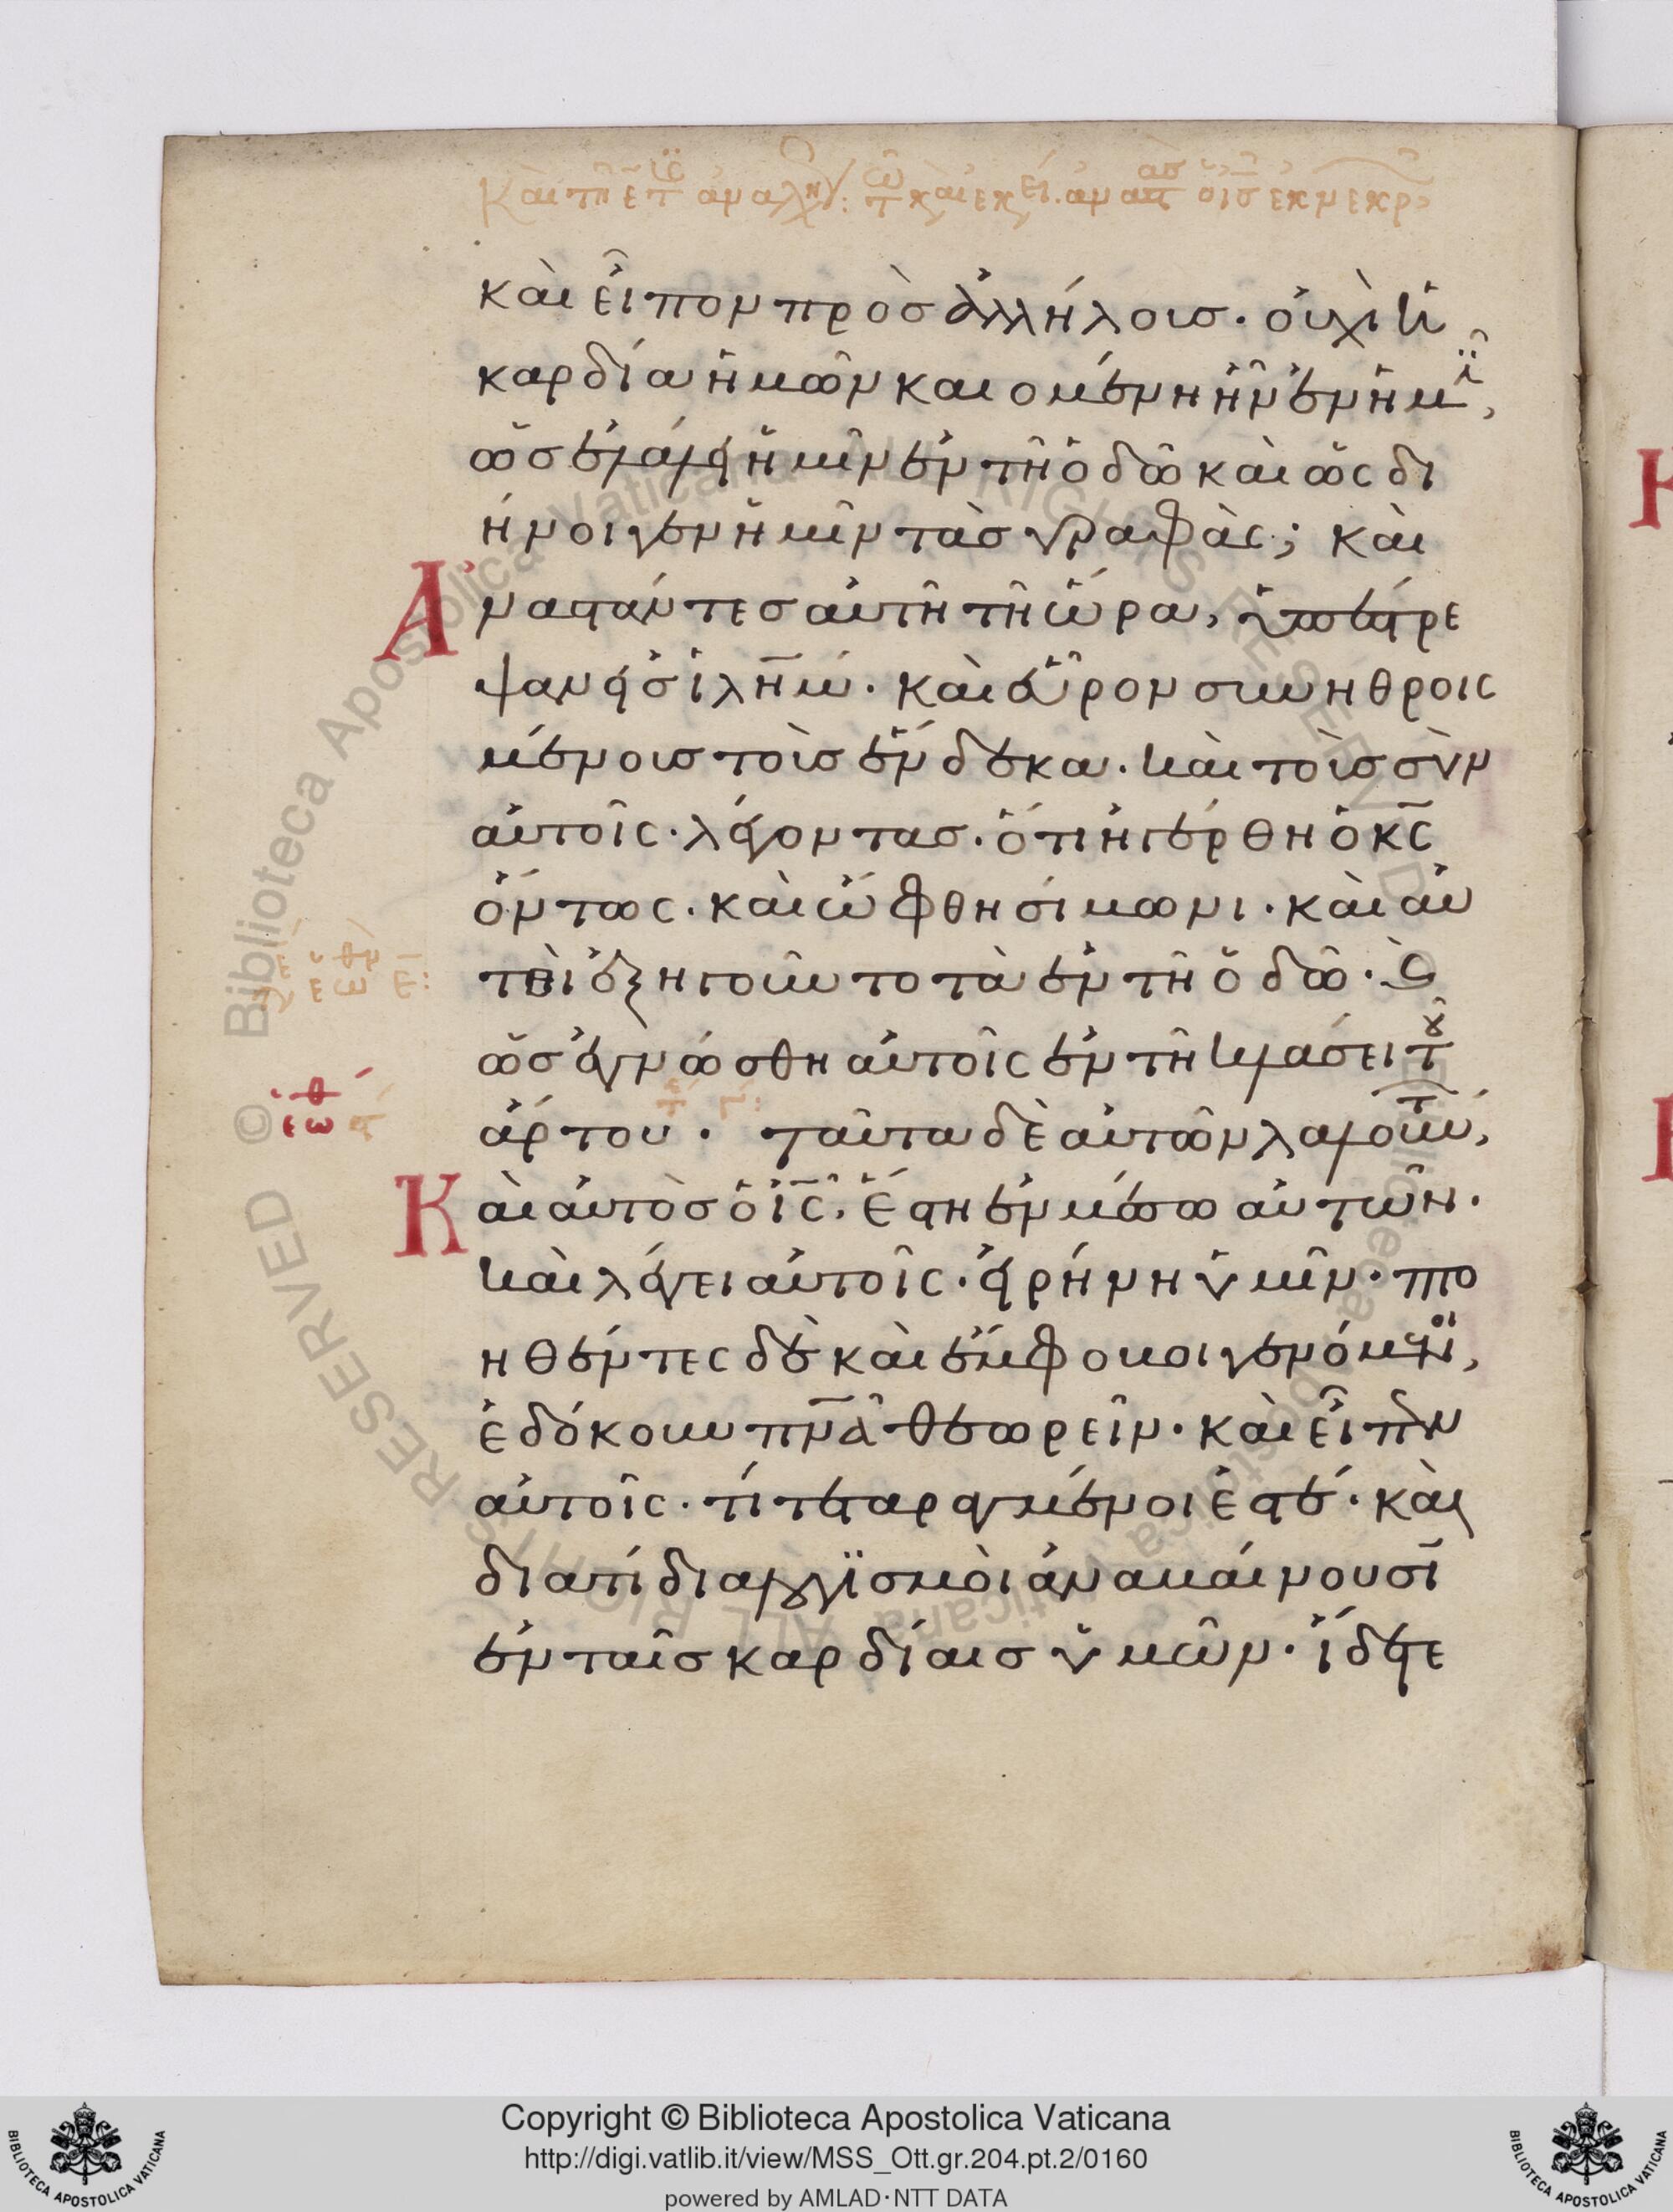 καὶ εἶπον πρὸσ ἀλλήλουσ· οὐχὶ ἡ
καρδία ἡμῶν καιομένη ἦν ἐν ἡμῖ,
ὡσ ἐλάλει ἡμῖν ἐν τῆ ὁδῶ καὶ ὡς δι
ήνοιγεν ἡμῖν τὰσ γραφὰς; καὶ
Ἀναστάντεσ αὐτῆ τῆ ὥρα, ὑπέστρε
ψαν εἰσ ἰλη̄μ· καὶ εὗρον συνηθροισ
μένουσ τοὺσ ἕνδεκα· καὶ τοὺσ σὺν
αὐτοῖς· λέγοντασ· ὅτι ἠγέρθη ὁ κ̄ς
ὄντως· καὶ ὤφθη σίμωνι· καὶ αὐ
τοὶ ἐξηγοῦντο τὰ ἐν τῆ ὁδῶ· ϗ
ὡσ ἐγνώσθη αὐτοῖς ἐν τῆ κλάσει τοῦ
ἄρτου· ταῦτα δὲ αὐτῶν λαλούντων,
Καὶ αὐτὸσ ὁ ῑς, ἔστη ἐν μέσω αὐτῶν·
καὶ λέγει αὐτοῖς· εἰρήνη ὑμῖν· πτο
ηθέντες δὲ καὶ ἔμφοβοι γενόμενοι,
ἐδόκουν πν̄α θεωρεῖν· καὶ εἶπεν
αὐτοῖς· τί τεταραγμένοι ἐστέ· καὶ
διατί διαλογϊσμοὶ ἀναβαίνουσῑ
ἐν ταῖσ καρδίαισ ὑμῶν· ἴδετε
© Biblioteca Apostolica Vaticana ALL RIGHTS RESERVED
Copyright © Biblioteca Apostolica Vaticana
http://digi.vatlib.it/view/MSS_Ott.gr.204.pt.2/0160
powered by AMLAD·NTT DATA
BIBLIOTECA APOSTOLICA VATICANA
BIBLIOTECA APOSTOLICA VATICANA